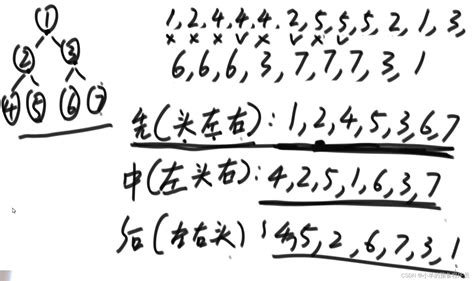 1
2 3
4 5 6 7
1, 2, 4, 4, 4, 2, 5, 5, 5, 2, 1, 3,
× × × ✓ × ✓ × ✓
6, 6, 6, 3, 7, 7, 7, 3, 1
先(头左右): 1, 2, 4, 5, 3, 6, 7
中(左头右): 4, 2, 5, 1, 6, 3, 7
后(左右头): 4, 5, 2, 6, 7, 3, 1